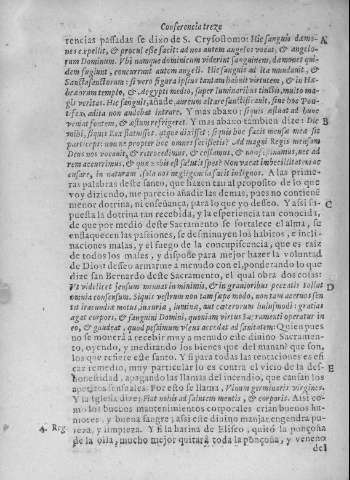 Conferencia treze
rencias passadas se dixo de S. Crysostomo: Hic sanguis dæmo- A
nes expellit, & procul esse facit: ad nos autem angelos vocat, & angelo-
rum Dominum. Vbi namque dominicum viderint sanguinem, dæmones qui-
dem fugiunt, concurrunt autem angeli. Hic sanguis ad ita mundauit, &
Sancta sanctorum: si vero figura ipsius tantam habuit virtutem, & in Hæ-
bræorum templo, & Aegypti medio, super luminaribus tinctis, multo ma-
gis veritas. Hic sanguis, añade, aureum altare sanctificauit, sine hoc Pon-
tifex adita non audebat intrare. Y mas abaxo: siquis æstuat ad hunc
veniat fontem, & æstum refriget. Y mas abaxo tambien dize: Dic B
mihi, siquis Rex statuisset, atque dixisset: siquis hoc facit mensæ meæ sit
particeps: nonne propter hoc omnes fecissetis? Ad magni Regis mensam
Deus nos vocauit, & retrocedimus, & cessamus, & non properamus, nec ad
rem accurrimus, & quæ nobis est salutis spes? Non vacat imbecillitatem ac-
cusare, in naturam, sola nos negligencia facit indignos. A las prime-
ras palabras deste santo, que hazen tan al proposito de lo que
voy diziendo, me parecio añadir las demas, pues no contienē
menor dotrina, ni enseñança, para lo que yo desseo. Y assi su- C
puesta la dotrina tan recebida, y la esperiencia tan conocida,
de que por medio deste Sacramento se fortalece el alma, se
enflaquecen las passiones, se desminuyen los habitos, e incli-
naciones malas, y el fuego de la concupiscencia, que es raiz
de todos los males, y dispone para mejor hazer la voluntad
de Dios: desseo arrimarme a menudo con el, ponderando lo que
dize san Bernardo deste Sacramento, el qual obra dos cosas:
Vt videlicet sensum minuat in minimis, & in grauioribus peccatis tollat D
omnino consensum. Siquis vestrum non tam sæpe modo, non tam acerbos sen-
tit iracundiæ motus, inuidiæ, luxuriæ, aut cæterorum huiusmodi: gratias
agat corpori, & sanguini Domini, quoniam virtus Sacramenti operatur in
eo, & gaudeat, quod pessimum vlcus accedat ad sanitatem: Quien pues
no se mouerà a recebir muy a menudo este diuino Sacramen-
to, oyendo, y meditando los bienes que del manan? que son
los que refiere este santo. Y si para todas las tentaciones es efi-
caz remedio, muy particular lo es contra el vicio de la des- E
honestidad, apagando las llamas del incendio, que causan los
apetitos sensuales. Por esto se llama, Vinum germinans virgines.
Y la Iglesia dize: Fiat nobis ad salutem mentis, & corporis. Assi co-
mo los buenos mantenimientos corporales crian buenos hu-
mores, y buena sangre; assi este diuino manjar engendra pu-
4. Reg. reza, y limpieza. Y si la harina de Eliseo, quitò la ponçoña
de la olla, mucho mejor quitarà toda la ponçoña, y veneno
del